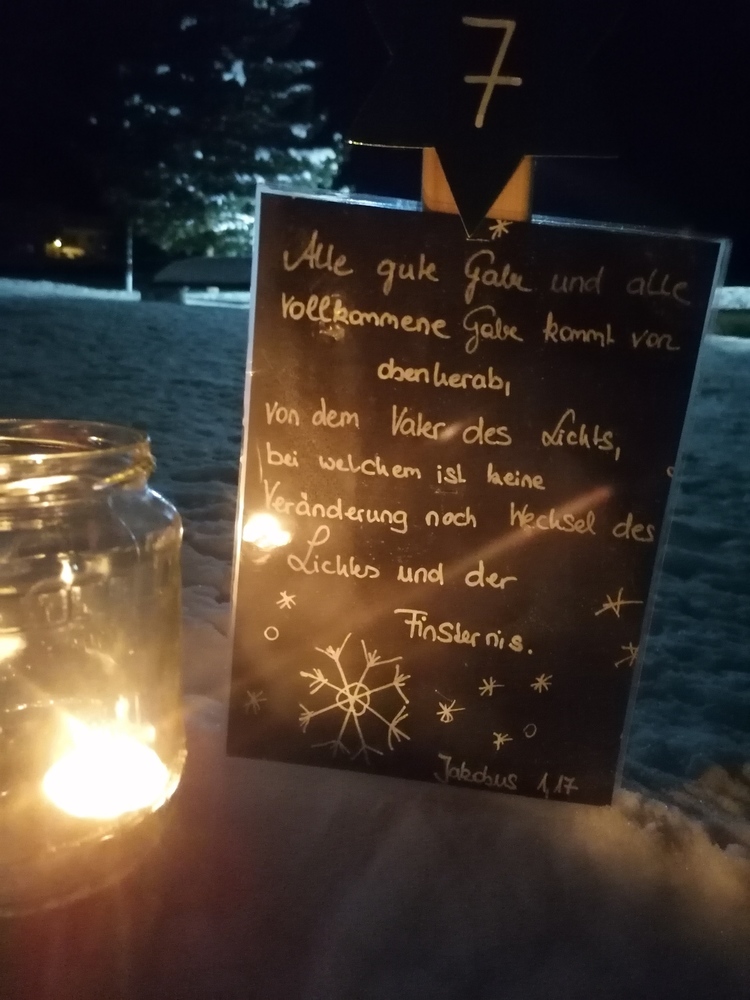 7
Alle gute Gabe und alle
vollkommene Gabe kommt von
obenherab,
von dem Vater des Lichts,
bei welchem ist keine
Veränderung noch Wechsel des
Lichtes und der
Finsternis.
Jakobus 1,17